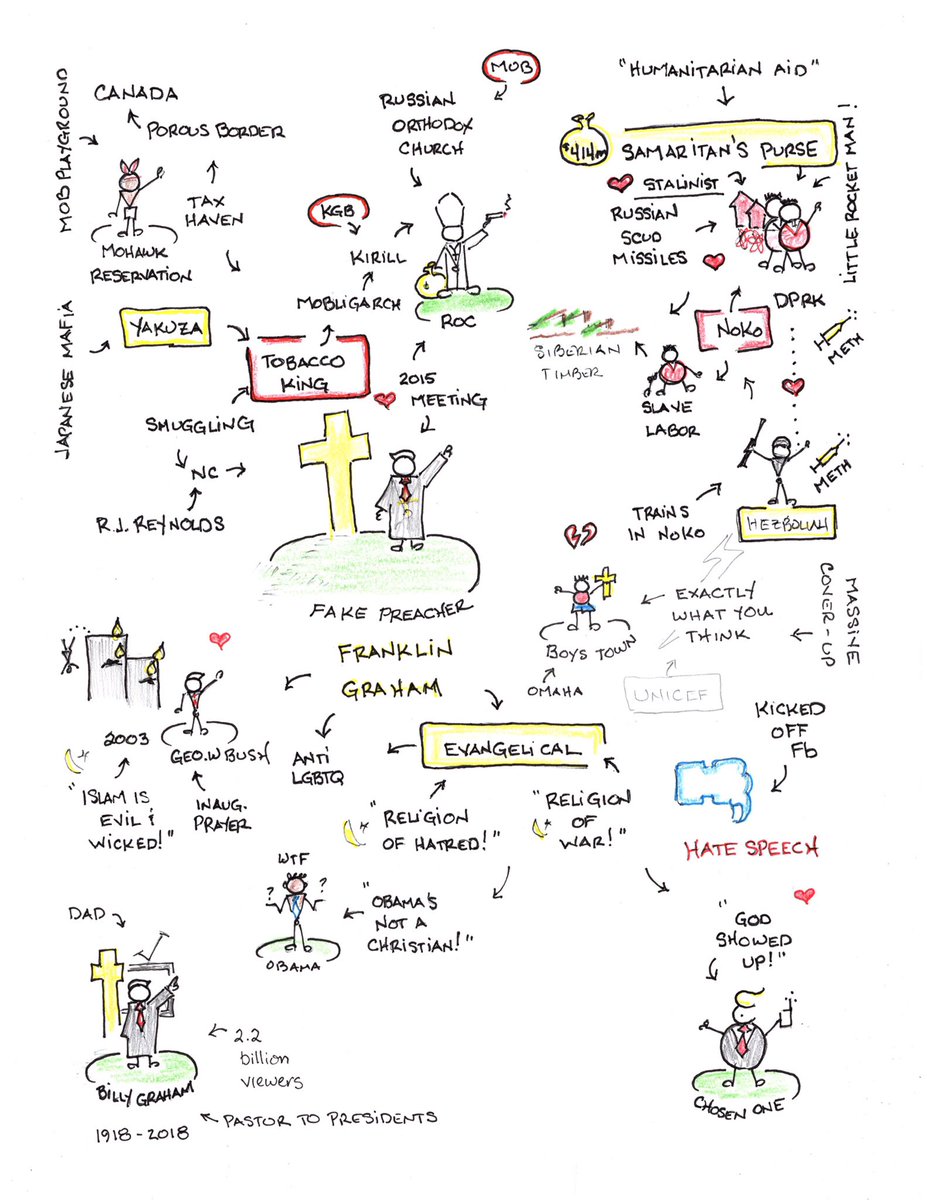 MOB
"HUMANITARIAN AID"
MOB PLAYGROUND
CANADA
POROUS BORDER
RUSSIAN
ORTHODOX
CHURCH
$414m
SAMARITAN'S PURSE
LITTLE ROCKET MAN!
STALINIST
RUSSIAN
SCUD
MISSILES
TAX
HAVEN
KGB
KIRILL
MOHAWK
RESERVATION
MOBLIGARCH
ROC
DPRK
NOKO
METH
SIBERIAN
TIMBER
JAPANESE MAFIA
YAKUZA
TOBACCO
KING
2015
MEETING
SLAVE
LABOR
SMUGGLING
NC
R.J. REYNOLDS
METH
TRAINS
IN NOKO
HEZBOLLAH
FAKE PREACHER
FRANKLIN
GRAHAM
BOYS TOWN
OMAHA
EXACTLY
WHAT YOU
THINK
MASSINE
COVER-UP
UNICEF
KICKED
OFF
Fb
2003
GEO.W BUSH
ANTI
LGBTQ
EVANGELICAL
"ISLAM IS
EVIL &
WICKED!"
INAUG.
PRAYER
"RELIGION
OF HATRED!"
"RELIGION
OF
WAR!"
HATE SPEECH
WTF
? ?
OBAMA
"OBAMA'S
NOT A
CHRISTIAN!"
"GOD
SHOWED
UP!"
CHOSEN ONE
DAD
BILLY GRAHAM
1918-2018
2.2
billion
viewers
PASTOR TO PRESIDENTS